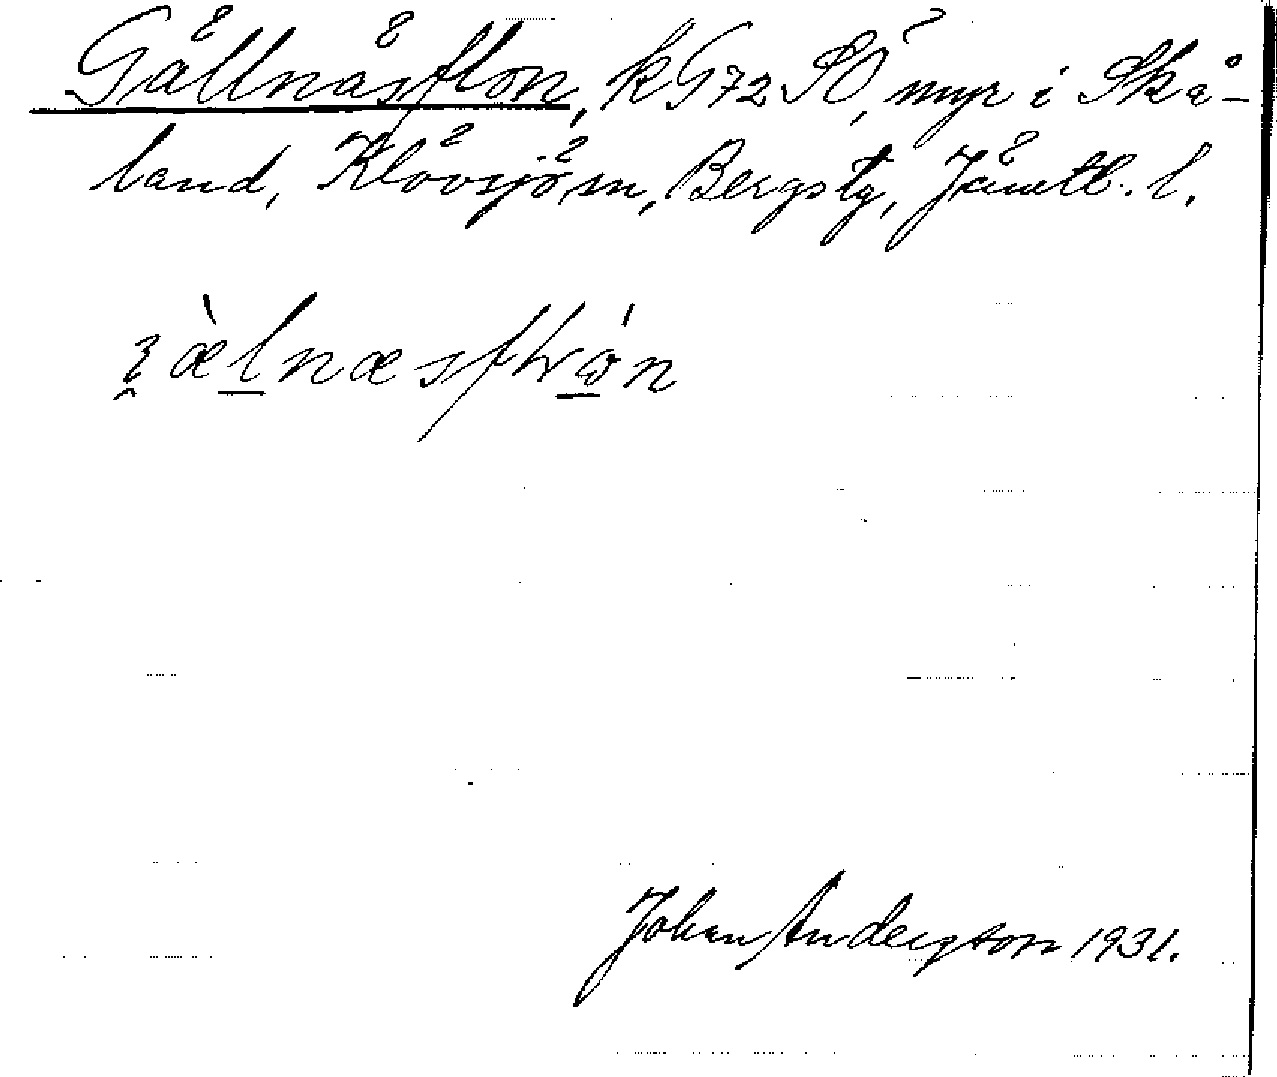 Gällnäsflon, kG72SÖ, myr i Skå-
land, Klövsjö sn, Bergs tg, Jämtl. l.
Johan Anderzson 1931.